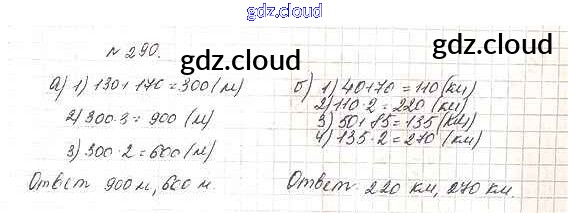 gdz.cloud
N 290.
gdz.cloud
а) 1) 130+170=300 (м)
2) 300·3=900 (м)
3) 300·2=600 (м)
Ответ 900 м, 600 м.
б) 1) 40+70=110 (км)
2) 110·2=220 (км)
3) 50+85=135 (км)
4) 135·2=270 (км)
Ответ: 220 км, 270 км.
gdz.cloud
gdz.cloud